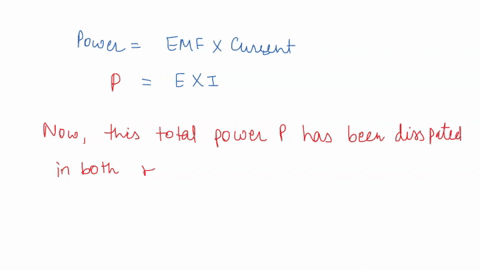 Power = EMF X Current
P = E X I
Now, this total power P has been disspated
in both r